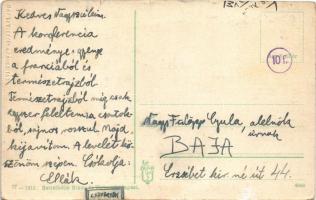 Kedves Nagyszüleim.
A konferencia
eredménye: gyenge
a franciából és
természetrajzból
Természetrajzból még csak
egyszer feleltem s a csontok-
ból, sajnos rosszul. Majd
kijavítom. A levelet kö-
szönöm szépen. Csókolja:
Nagy Fülöpp Gyula alelnök
úrnak
BAJA
Erzsébet kir né út 44.
10 f.